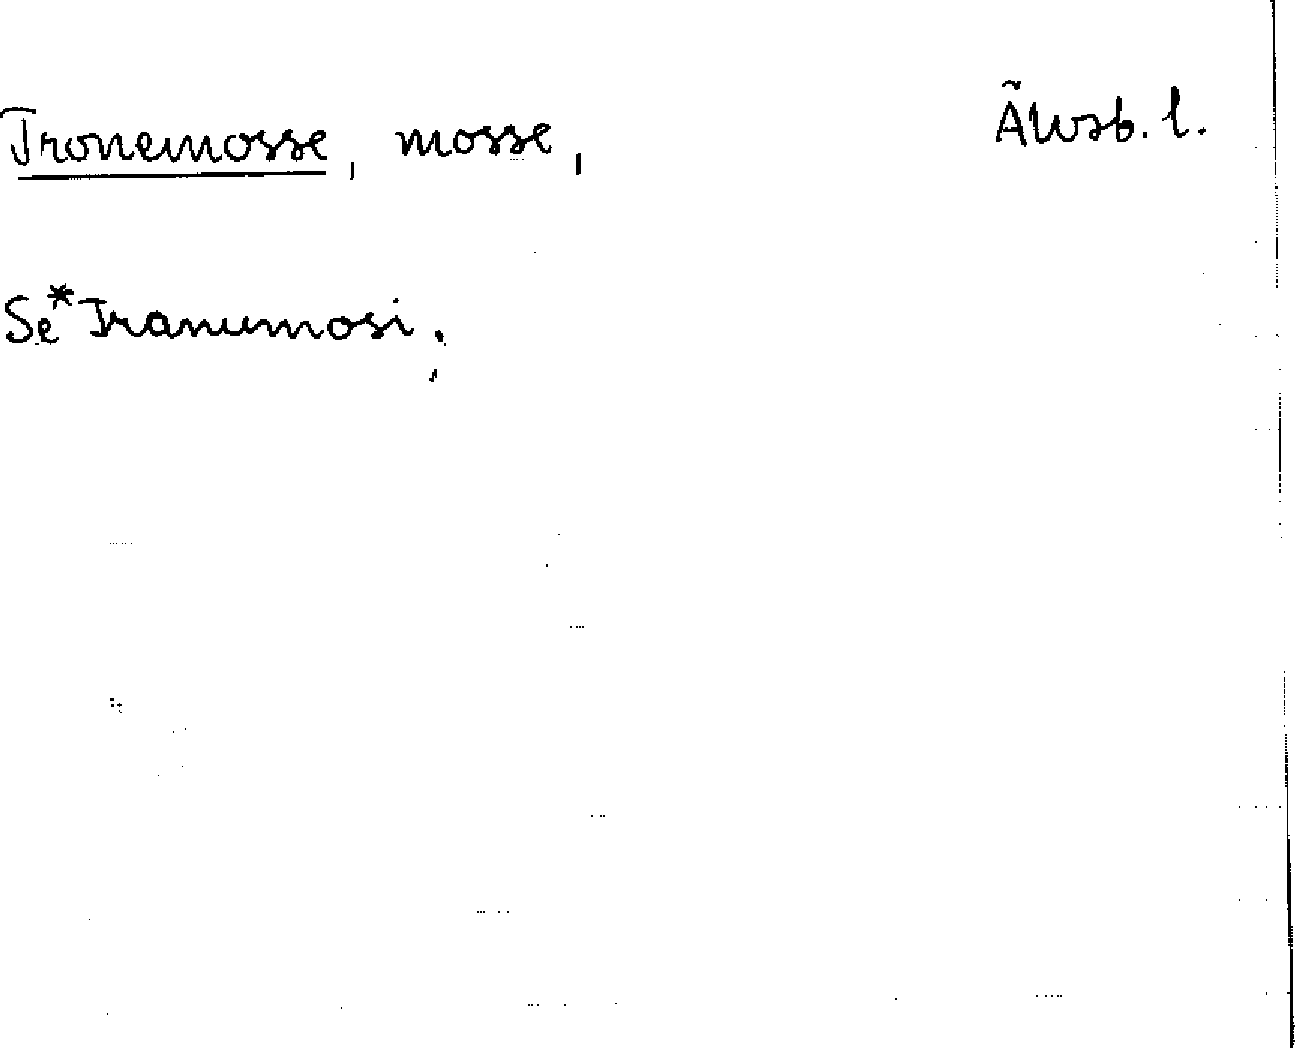 Tronemosse, mosse, Älvsb. l.
Se *Tranumosi.